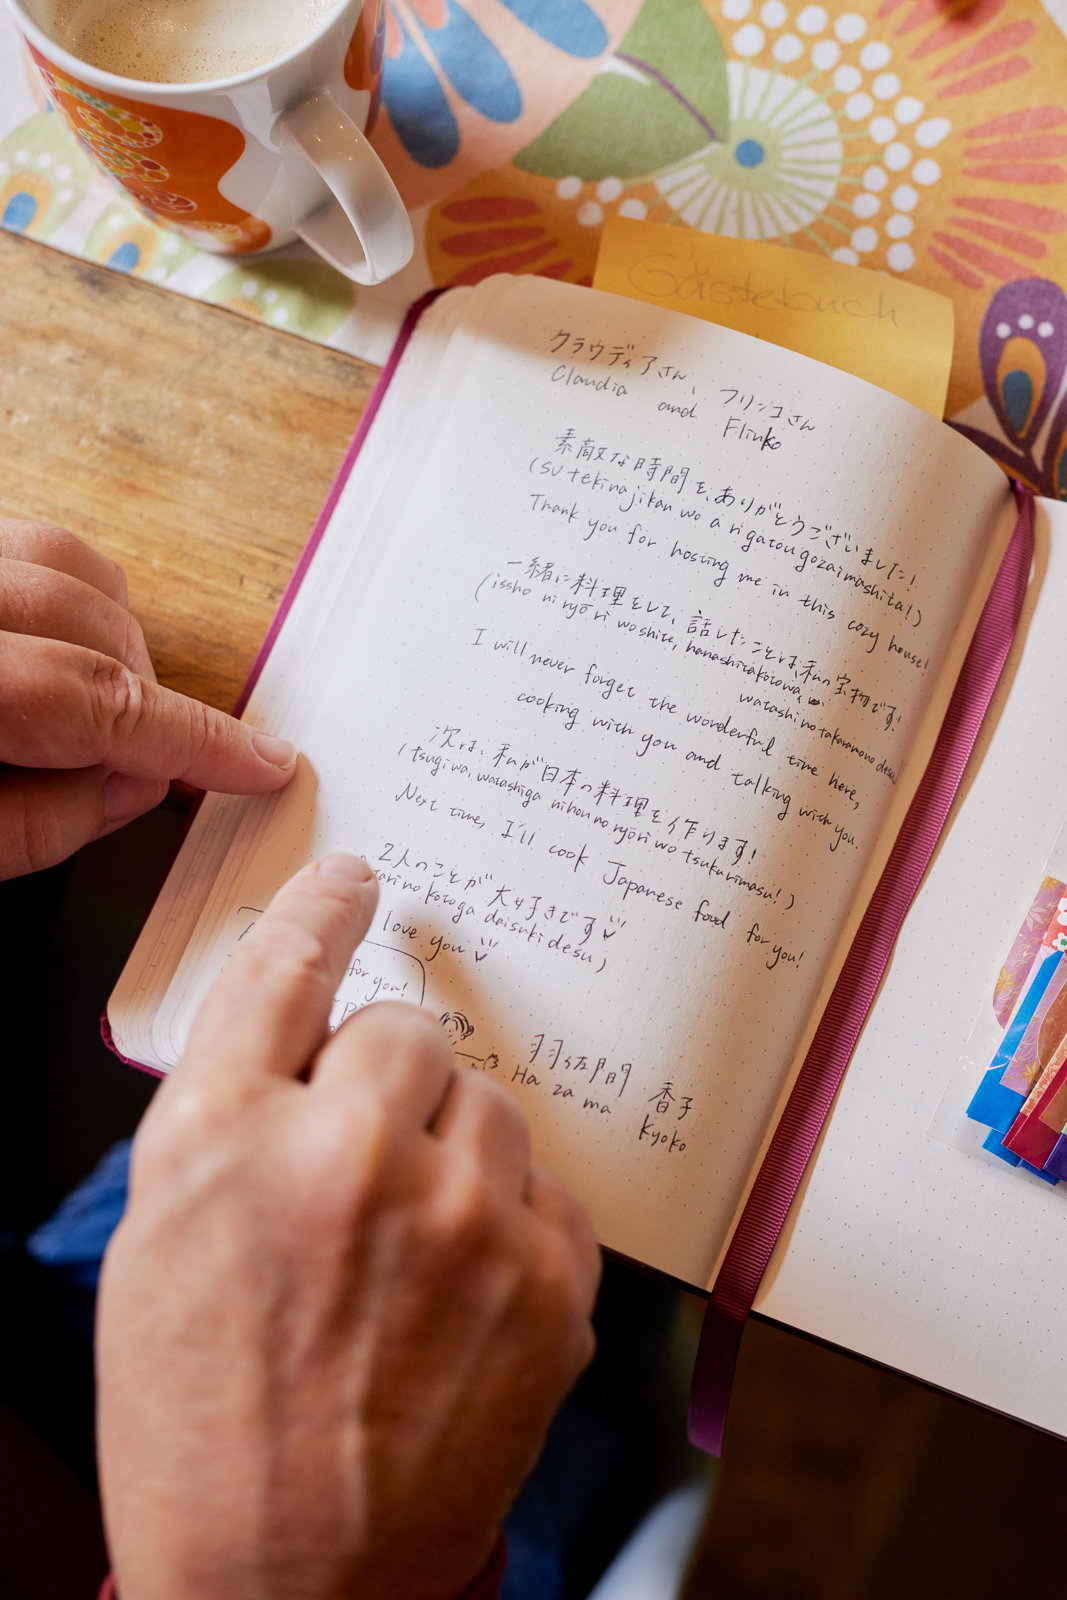 Gästebuch
クラウディアさん、フリンコさん
Claudia and Flinko
素敵な時間を、ありがとうございました!
(su tekina jikan wo a rigatou gozaimashita!)
Thank you for hosting me in this cozy house!
一緒に料理をして、話したことは、私の宝物です!
(issho ni ryōri wo shite, hanashitakotowa,
watashi no takaramono desu!
I will never forget the wonderful time here,
cooking with you and talking with you.
次は、私が日本の料理を作ります!
(tsugi wa, watashiga nihon no ryōri wo tsukurimasu!)
Next time, I'll cook Japanese food for you!
2人のことが大好きです
tari no kotoga daisuki desu)
love you
for you!
羽佐間 香子
Ha za ma kyoko